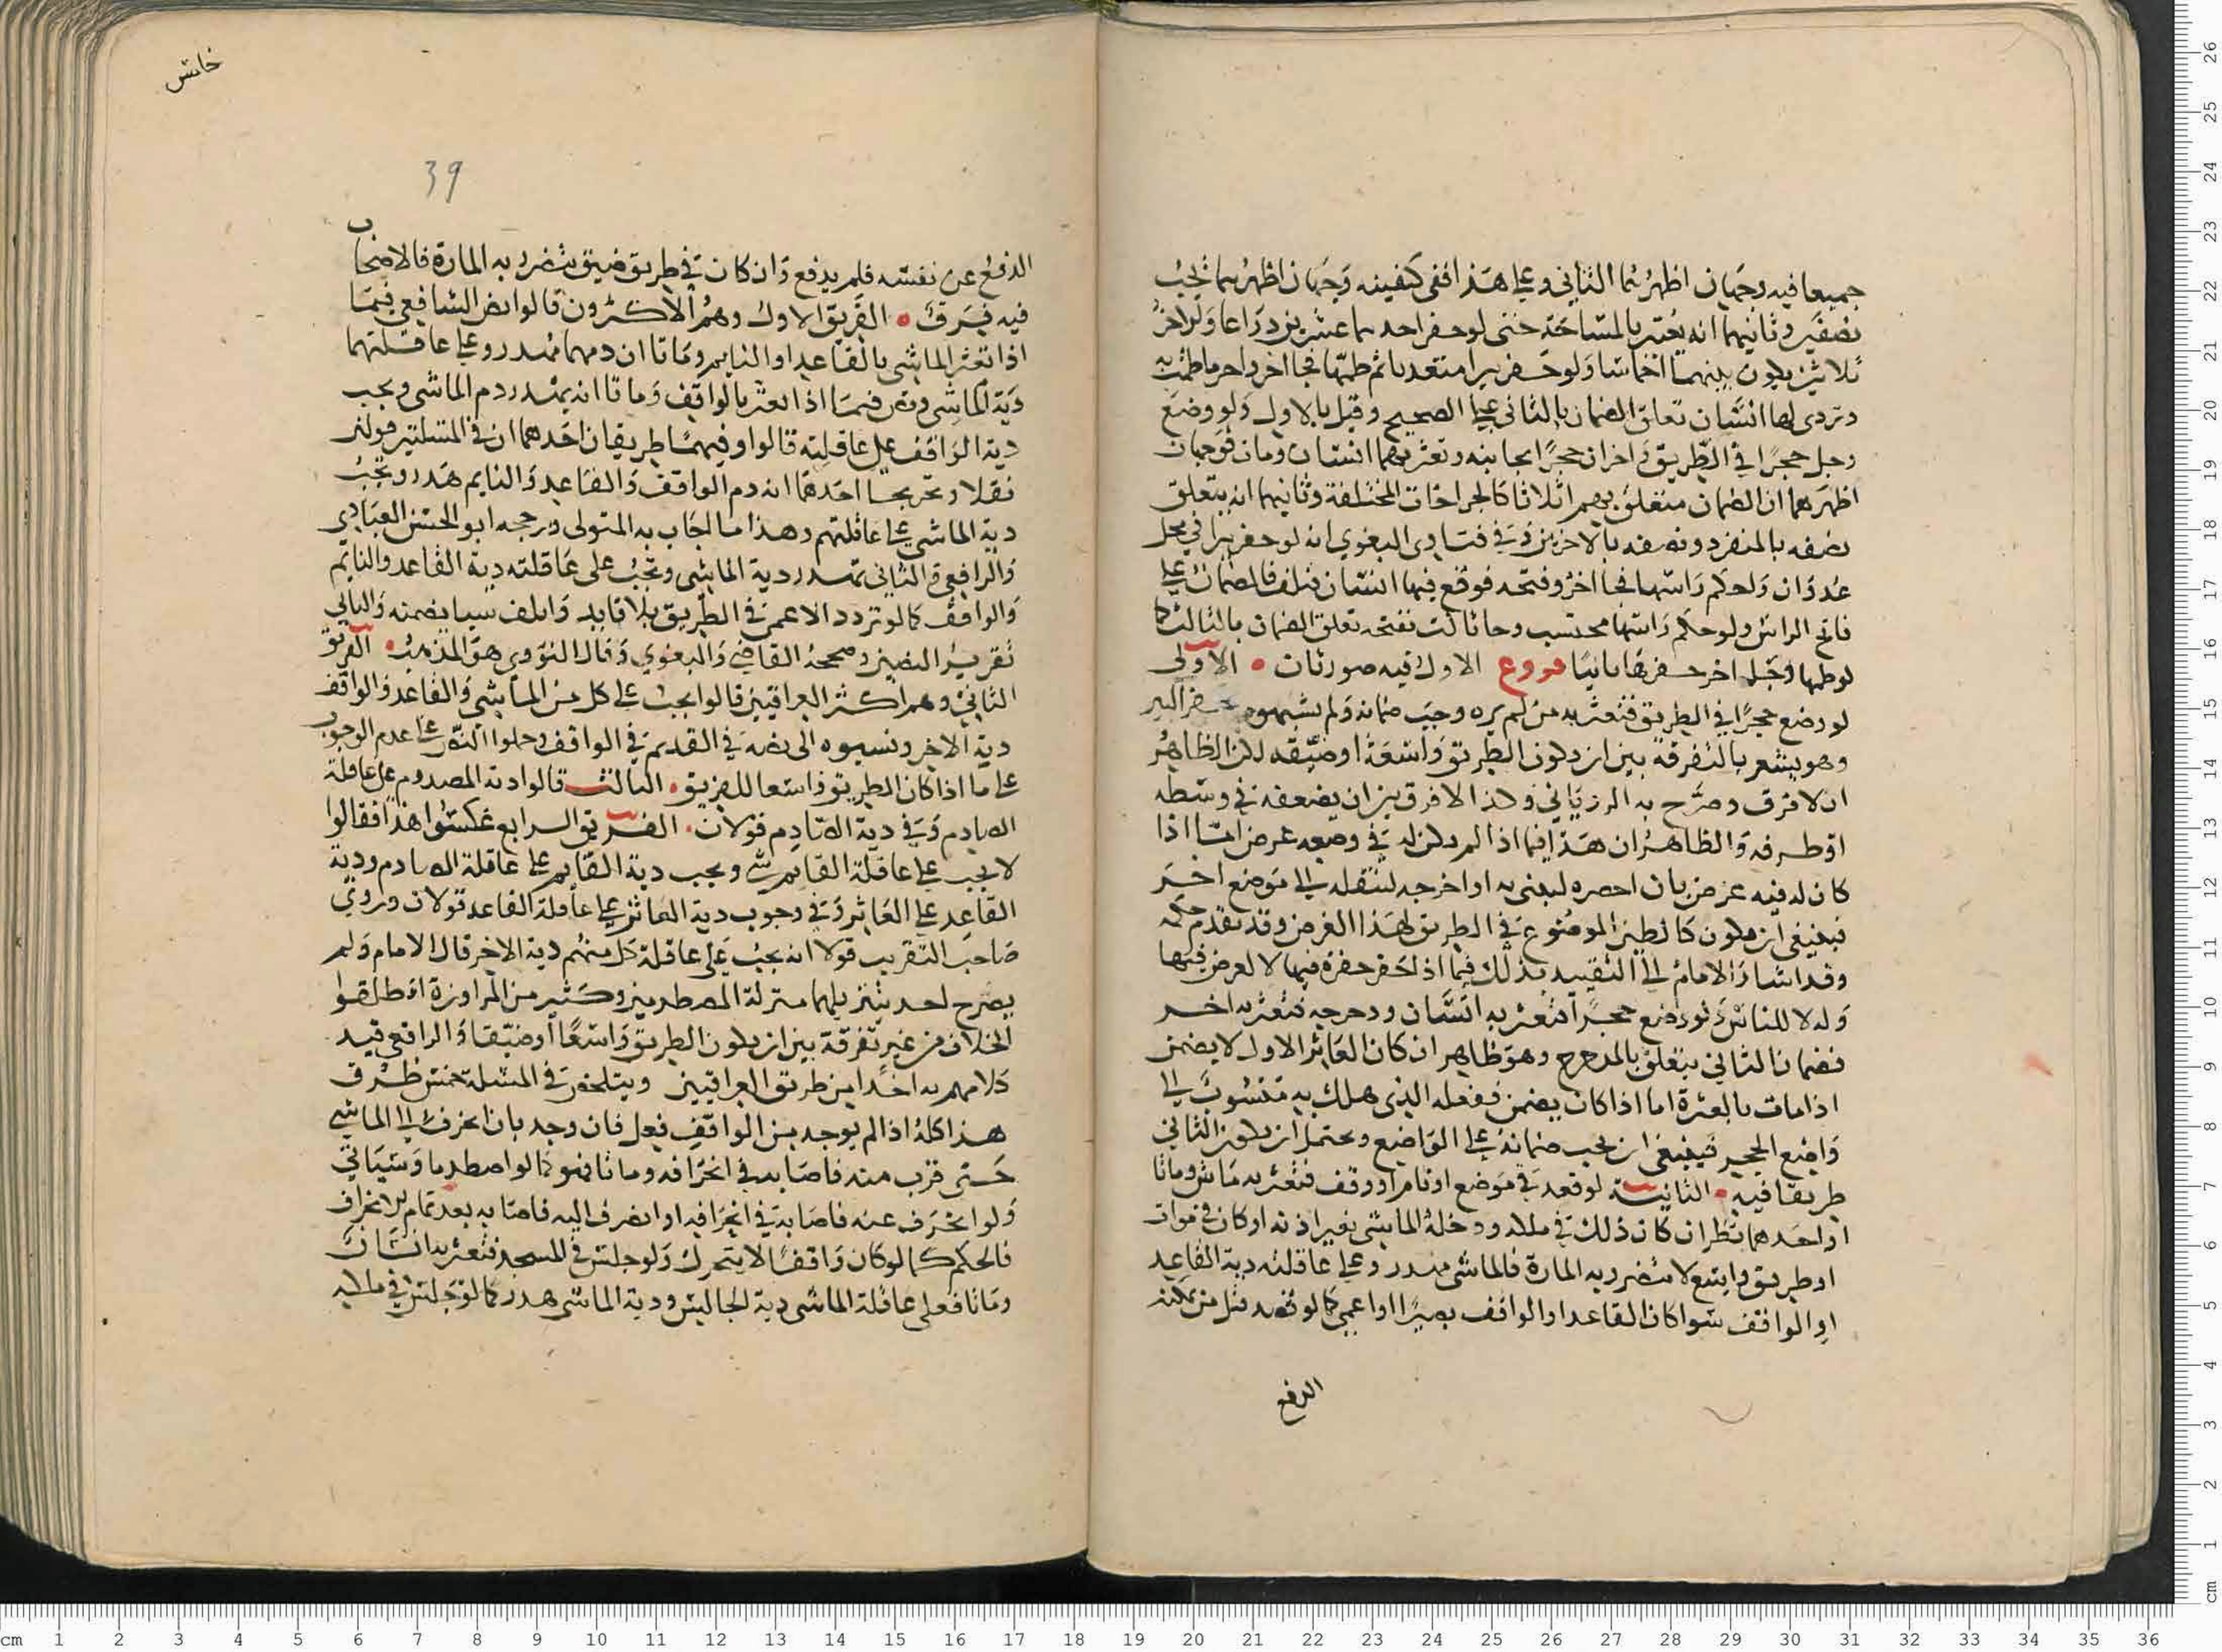 جميعا فيه وجهان اظهرهما الثاني وعلى هذا ففي كيفيته وجهان اظهرهما يجب
نصفين وثانيهما انه يعتبر بالمساحة حتى لو حفر احدهما عشرين ذراعا والاخر
ثلاثين يكون بينهما اخماسا ولو حفر بيرا متعديا ثم طمها فجا اخر واخرج ما طمت به
وتردى لها انسان تعلق الضمان بالثاني على الصحيح وقيل بالاول ولو وضع
رجل حجرا في الطريق واخران حجرا بجانبه وتعثر بهما انسان ومات فوجهان
اظهرهما ان الضمان متعلق بهم اثلاثا كالجراحات المختلفة وثانيهما انه يتعلق
نصفه بالمنفرد ونصفه بالاخرين وفي فتاوى البغوي انه لو حفر بيرا في محل
عدوان ولحكم راسها فجا اخر وفتحه فوقع فيها انسان فتلف فالضمان على
فاتح الراس ولو حكم راسها محتسب وجا ثالث ففتحه تعلق الضمان بالثالث كما
لو طمها وجا اخر حفرها ثانيا فروع الاول فيه صورتان الاولى
لو وضع حجرا في الطريق فتعثر به من لم يره وجب ضمانه ولم يشبهوه بحفر البير
وهو يشعر بالتفرقة بين ان يكون الطريق واسعة او ضيقه لكن الظاهر
ان لا فرق وصرح به الروياني وكذا لا فرق بين ان يضعفه في وسطه
او طرفه والظاهر ان هذا فيما اذا لم يكن له في وضعه غرض اما اذا
كان له فيه غرض بان احضره ليبني به او اخرجه لينقله الى موضع اخر
فينبغي ان يكون كالطين الموضوع في الطريق لهذا الغرض وقد تقدم حكمه
وقد اشار الامام الى التقييد بذلك فيما اذا حفر حفرة فيها لا لغرض فيها
وله لا للناس ولو وضع حجرا فتعثر به انسان ودحرجه فتعثر به اخر
فضمان الثاني يتعلق بالمدحرج وهو ظاهر ان كان العاثر الاول لا يضمن
اذا مات بالعثرة اما اذا كان يضمن ففعله الذي هلك به منسوب الى
واضع الحجر فينبغي ان يجب ضمانه على الواضع ويحتمل ان يكون الثاني
طريقا فيه الثانية لو قعد في موضع او نام او وقف فتعثر به ماش وماتا
او احدهما نظر ان كان ذلك في ملكه ودخله الماشي بغير اذنه او كان في موات
او طريق واسع لا يتضرر به المارة فالماشي مهدر وعلى عاقلته دية القاعد
او الواقف سوا كان القاعد او الواقف بصيرا او اعمى كما لو قصد قتل من يمكنه
الدفع
خامس
39
الدفع عن نفسه فلم يدفع وان كان في طريق ضيق يتضرر به المارة فالاصحاب
فيه فرق الفريق الاول وهم الاكثرون قالوا نص الشافعي فيما
اذا تعثر الماشي بالقاعد او النايم وماتا ان دمهما مهدر وعلى عاقلتهما
دية الماشي ونص فيما اذا تعثر بالواقف وماتا انه يهدر دم الماشي ويجب
دية الواقف على عاقلته قالوا وفيهما طريقان احدهما ان في المسلتين قولين
نقلا وتخريجا احدهما ان دم الواقف والقاعد والنايم هدر وتجب
دية الماشي على عاقلتهم وهذا ما اجاب به المتولي ورجحه ابو الحسن العبادي
والرافعي والثاني تهدر دية الماشي وتجب على عاقلته دية القاعد والنايم
والواقف كما لو تردد الاعمى في الطريق بلا قايد واتلف شيا يضمنه والثاني
تقرير النصين وصححه القاضي والبغوي وقال النووي هو المذهب الفريق
الثاني وهم اكثر العراقيين قالوا يجب على كل من الماشي والقاعد والواقف
دية الاخر ونسبوه الى نصه في القديم في الواقف وحملوا النص على عدم الوجوب
على ما اذا كان الطريق واسعا للفريق الثالث قالوا دية المصدوم على عاقلة
الصادم وفي دية الصادم قولان الفريق الرابع عكسوا هذا فقالوا
لا يجب على عاقلة القايم شي ويجب دية القايم على عاقلة الصادم ودية
القاعد على العاثر وفي وجوب دية العاثر على عاقلة القاعد قولان وروى
صاحب التقريب قولا انه يجب على عاقلة كل منهم دية الاخر قال الامام ولم
يصرح احد بتنزيلهما منزلة المصطدمين وكثير من المراوزة اطلقوا
الخلاف من غير تفرقة بين ان يكون الطريق واسعا او ضيقا والرافعي قيد
كلامهم به اخذا من طريق العراقيين ويتلخص في المسلة خمس طرق
هذا كله اذا لم يوجد من الواقف فعل فان وجد بان انحرف الى الماشي
حتى قرب منه فاصابه في انحرافه وماتا فهو كما لو اصطدما وسياتي
ولو انحرف عنه فاصابه في انحرافه او انصرف اليه فاصابه بعد تمام الانحراف
فالحكم كما لو كان واقفا لا يتحرك ولو جلس في المسجد فتعثر به انسان
وماتا فعلى عاقلة الماشي دية الجالس ودية الماشي هدر كما لو جلس في ملكه